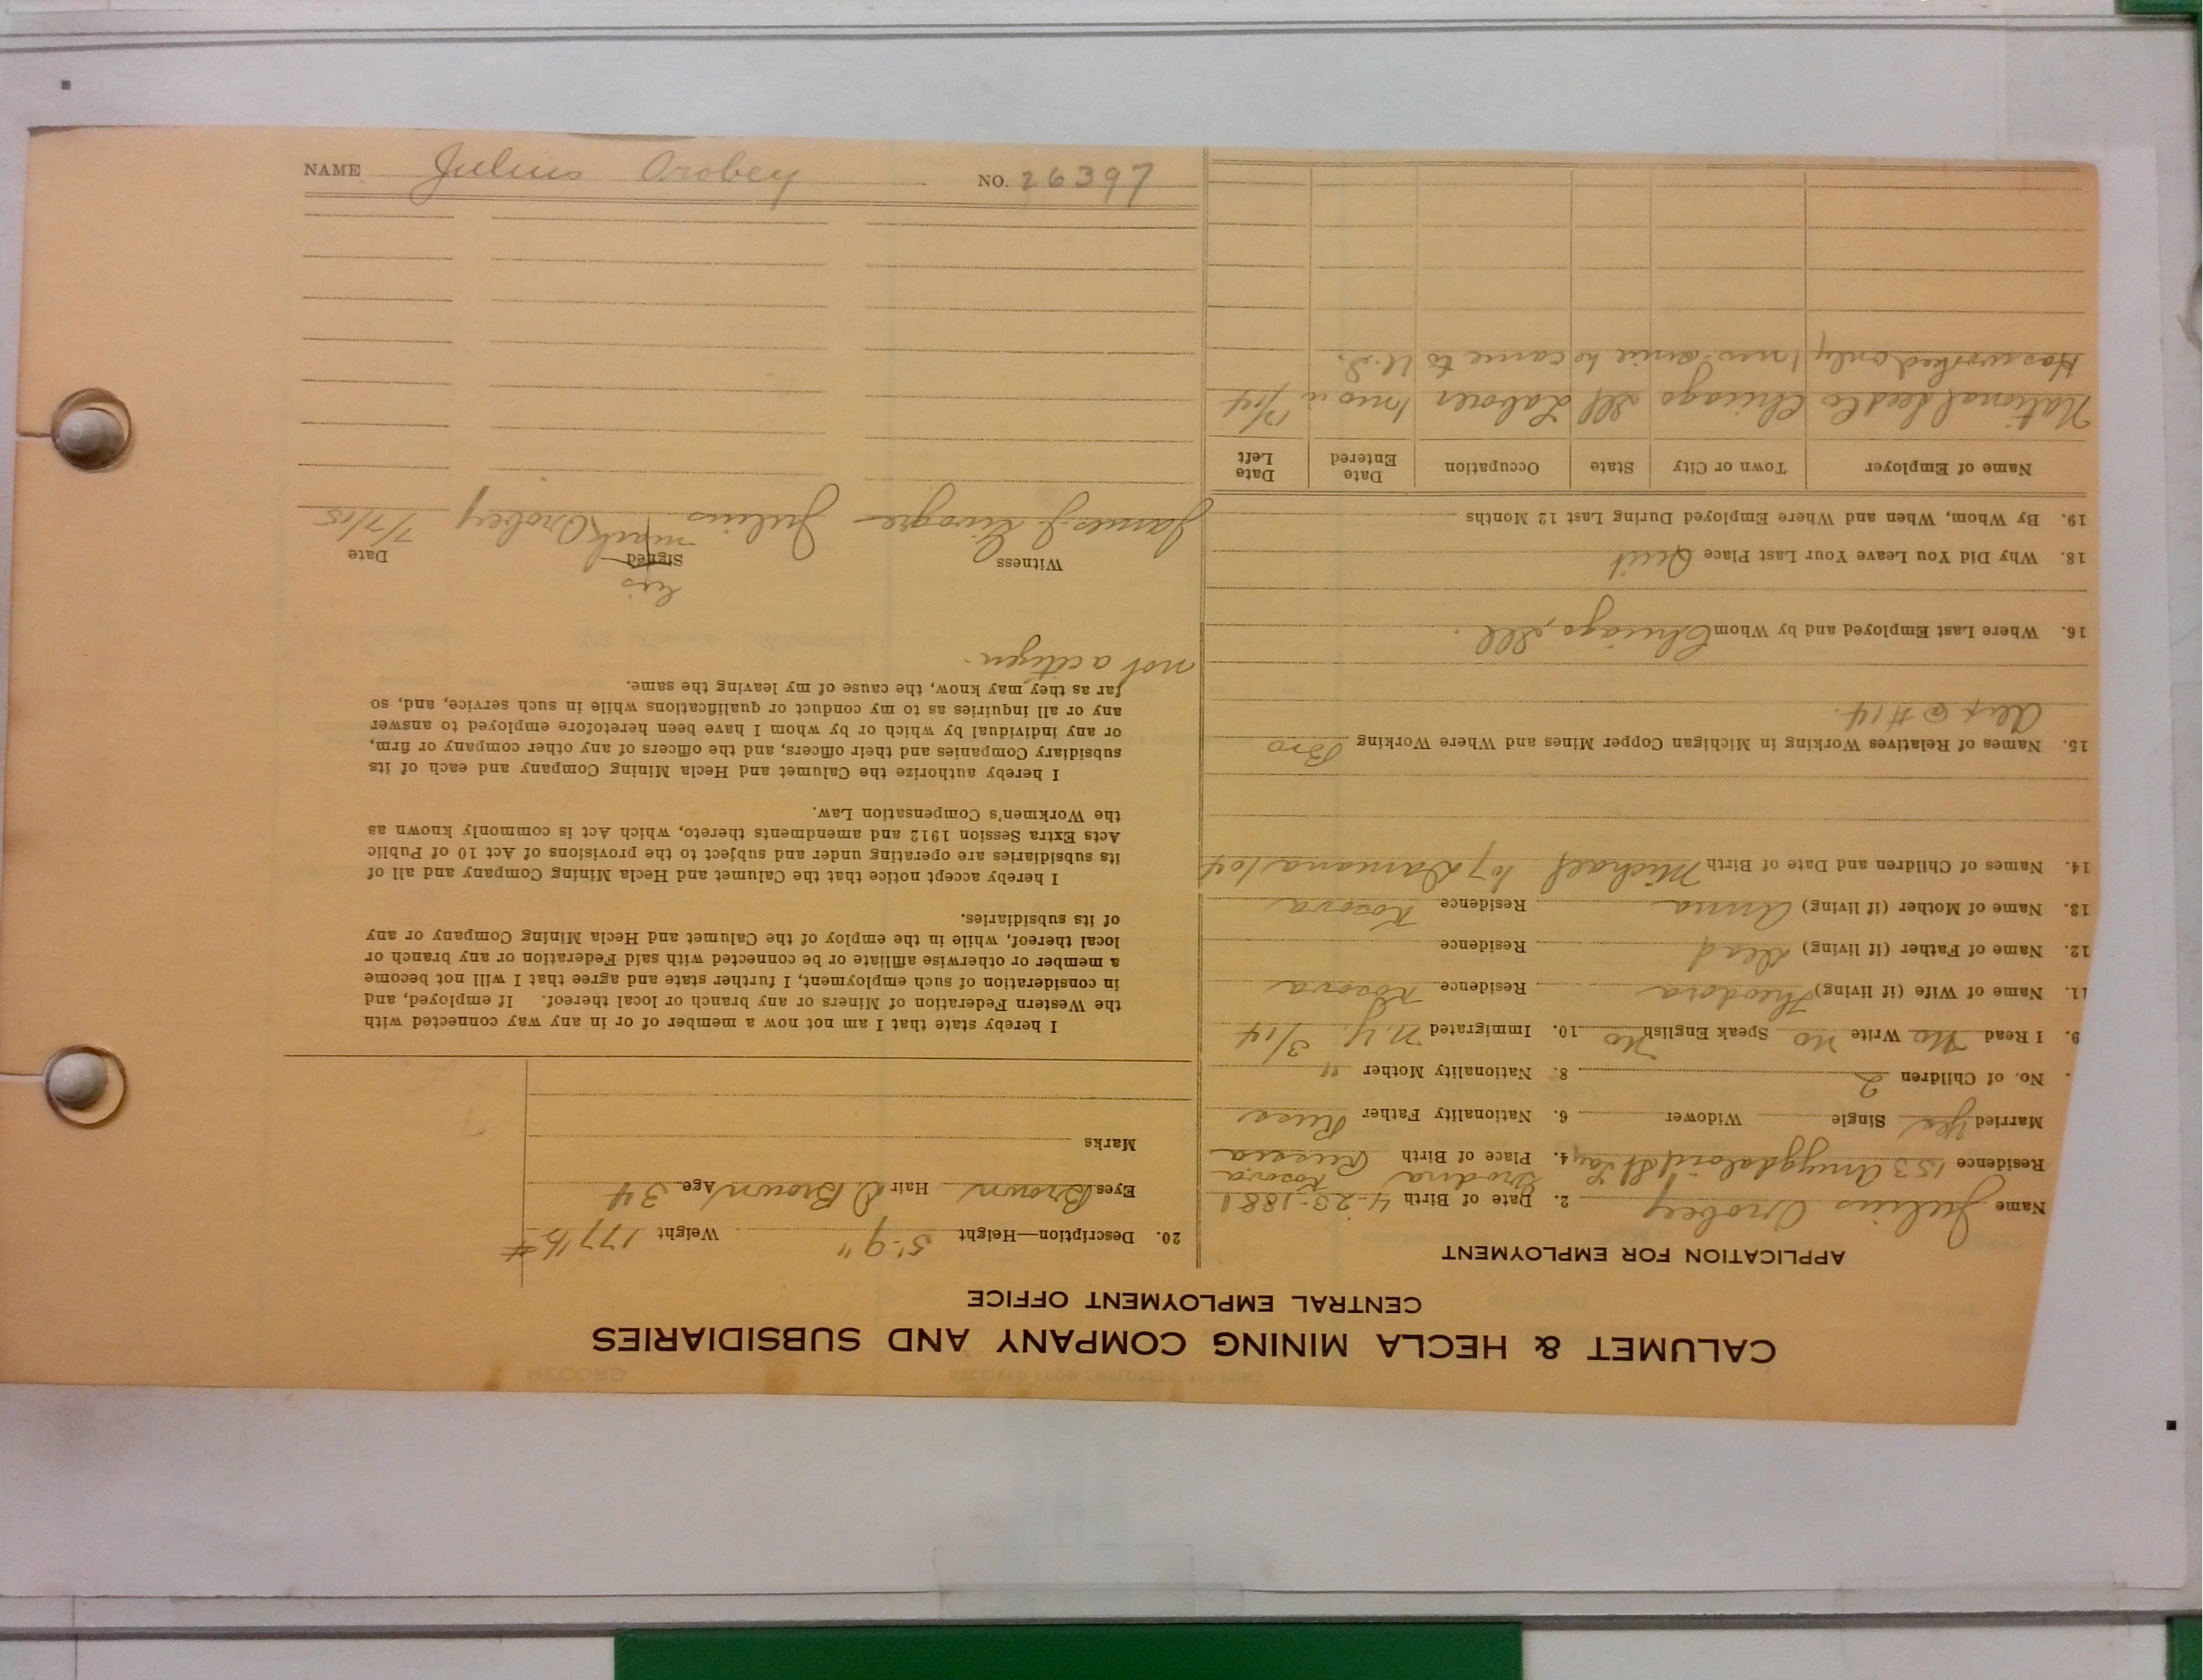 NAME Julius Orobey NO. 26397
CALUMET & HECLA MINING COMPANY AND SUBSIDIARIES
CENTRAL EMPLOYMENT OFFICE
APPLICATION FOR EMPLOYMENT
Name Julius Orobey 2. Date of Birth 4-23-1881
Grodna Kosova
Residence 153 Amygdaloid St 4. Place of Birth Russia
Married Yes Single Widower 6. Nationality Father Russ
. No. of Children 2 8. Nationality Mother "
9. I Read No Write No Speak English No 10. Immigrated N.Y. 3/14
11. Name of Wife (if living) Theodora Residence Kosova
12. Name of Father (if living) Dead Residence
13. Name of Mother (if living) Anna Residence Kosova
14. Names of Children and Date of Birth Michael 107
15. Names of Relatives Working in Michigan Copper Mines and Where Working Bro
Alex @ #14.
16. Where Last Employed and by Whom Chicago, Ill.
18. Why Did You Leave Your Last Place Quit
19. By Whom, When and Where Employed During Last 12 Months
Name of Employer Town or City State Occupation Date Entered Date Left
National Chicago Ill Laborer 12/14
Has worked only since he came to U.S.
20. Description—Height 5'-9" Weight 177 1/2 #
Eyes Brown Hair D. Brown Age 34
Marks
I hereby state that I am not now a member of or in any way connected with
the Western Federation of Miners or any branch or local thereof. If employed, and
in consideration of such employment, I further state and agree that I will not become
a member or otherwise affiliate or be connected with said Federation or any branch or
local thereof, while in the employ of the Calumet and Hecla Mining Company or any
of its subsidiaries.
I hereby accept notice that the Calumet and Hecla Mining Company and all of
its subsidiaries are operating under and subject to the provisions of Act 10 of Public
Acts Extra Session 1912 and amendments thereto, which Act is commonly known as
the Workmen's Compensation Law.
I hereby authorize the Calumet and Hecla Mining Company and each of its
subsidiary Companies and their officers, and the officers of any other company or firm,
or any individual by which or by whom I have been heretofore employed to answer
any or all inquiries as to my conduct or qualifications while in such service, and, so
far as they may know, the cause of my leaving the same.
not a citizen.
his
Witness Signed Date
mark
James J. Julius Orobey 7/7/15